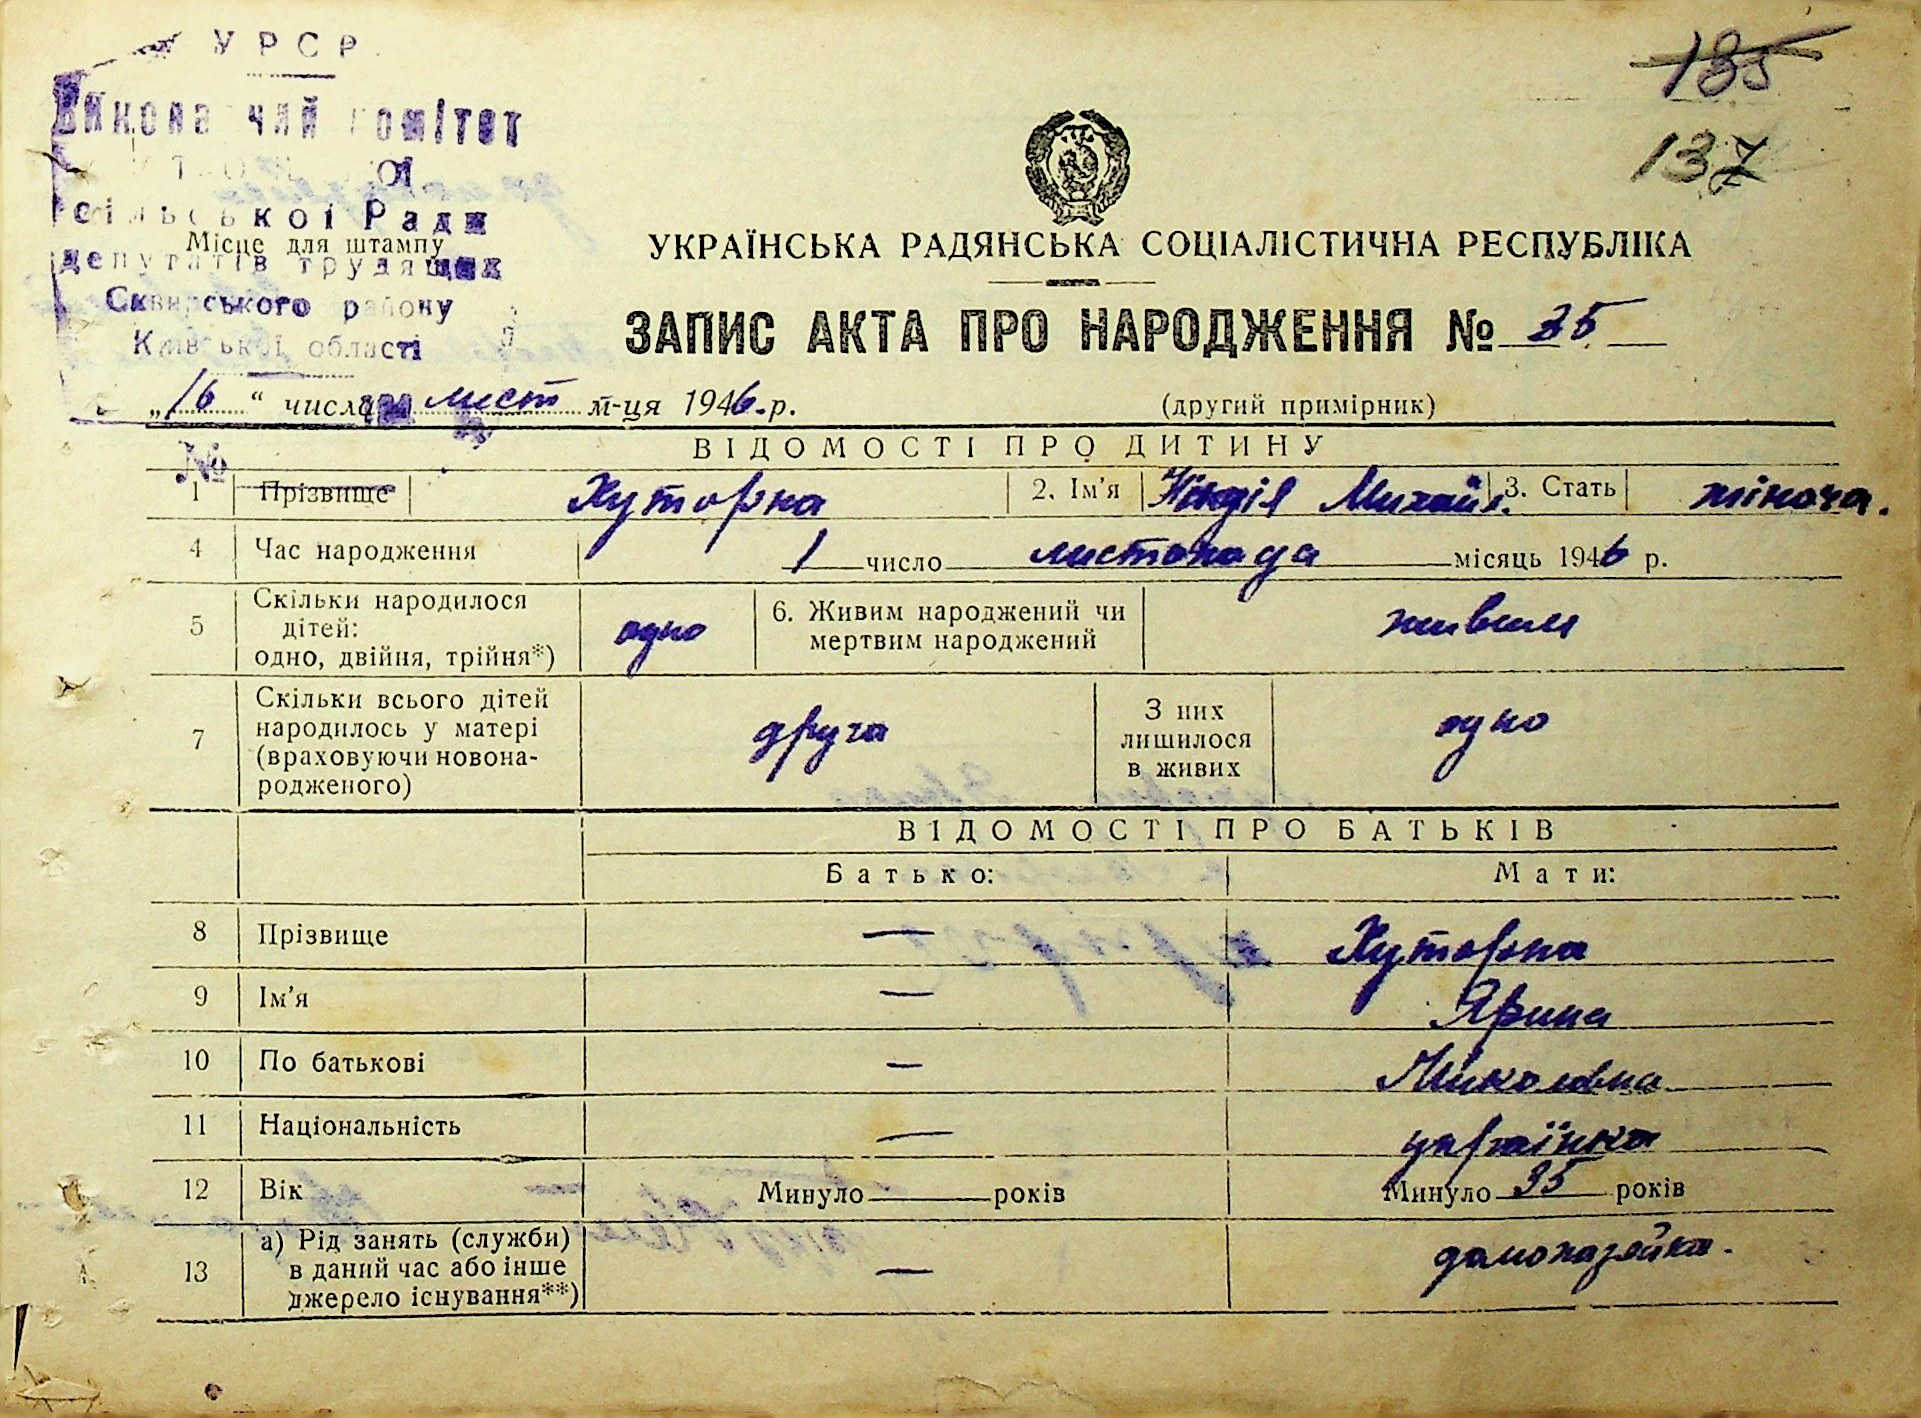 УРСР
Виконавчий комітет
сільської Ради
Місце для штампу
депутатів трудящих
Сквирського району
Київської області
185
137
УКРАЇНСЬКА РАДЯНСЬКА СОЦІАЛІСТИЧНА РЕСПУБЛІКА
ЗАПИС АКТА ПРО НАРОДЖЕННЯ № 35
„16“ числа лист м-ця 1946.р.
(другий примірник)
ВІДОМОСТІ ПРО ДИТИНУ
№
1 Прізвище Хуторна 2. Ім'я Надія Михайл. 3. Стать жіноча.
4 Час народження 1 число листопада місяць 1946 р.
5 Скільки народилося дітей: одно, двійня, трійня*) одно 6. Живим народжений чи мертвим народжений живим
7 Скільки всього дітей народилось у матері (враховуючи новонародженого) друга З них лишилося в живих одно
ВІДОМОСТІ ПРО БАТЬКІВ
Батько: Мати:
8 Прізвище — Хуторна
9 Ім'я — Ярина
10 По батькові — Миколівна
11 Національність — українка
12 Вік Минуло — років Минуло 35 років
13 а) Рід занять (служби) в даний час або інше джерело існування**) — домохазяйка.